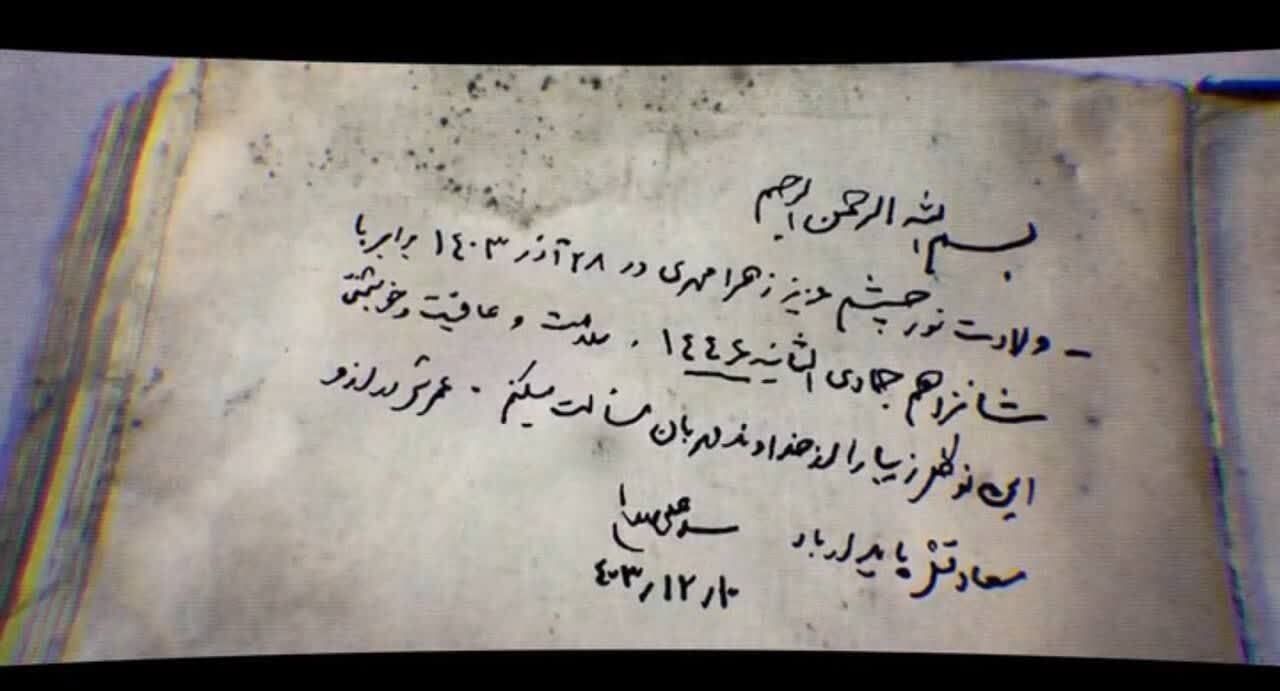 بسم الله الرحمن الرحیم
- ولادت نور چشم عزیز زهرا مهدی در ۲۸ آذر ۱۴۰۳ برابر با
شانزدهم جمادی الثانیه ۱۴۴۶ . سلامت و عافیت و خوشبختی
این نوگل زیبا را از خداوند مهربان مسألت میکنم - عمرش دراز و
سعادتش پایدار باد
سید علی
۱۰ / ۱۲ / ۴۰۳